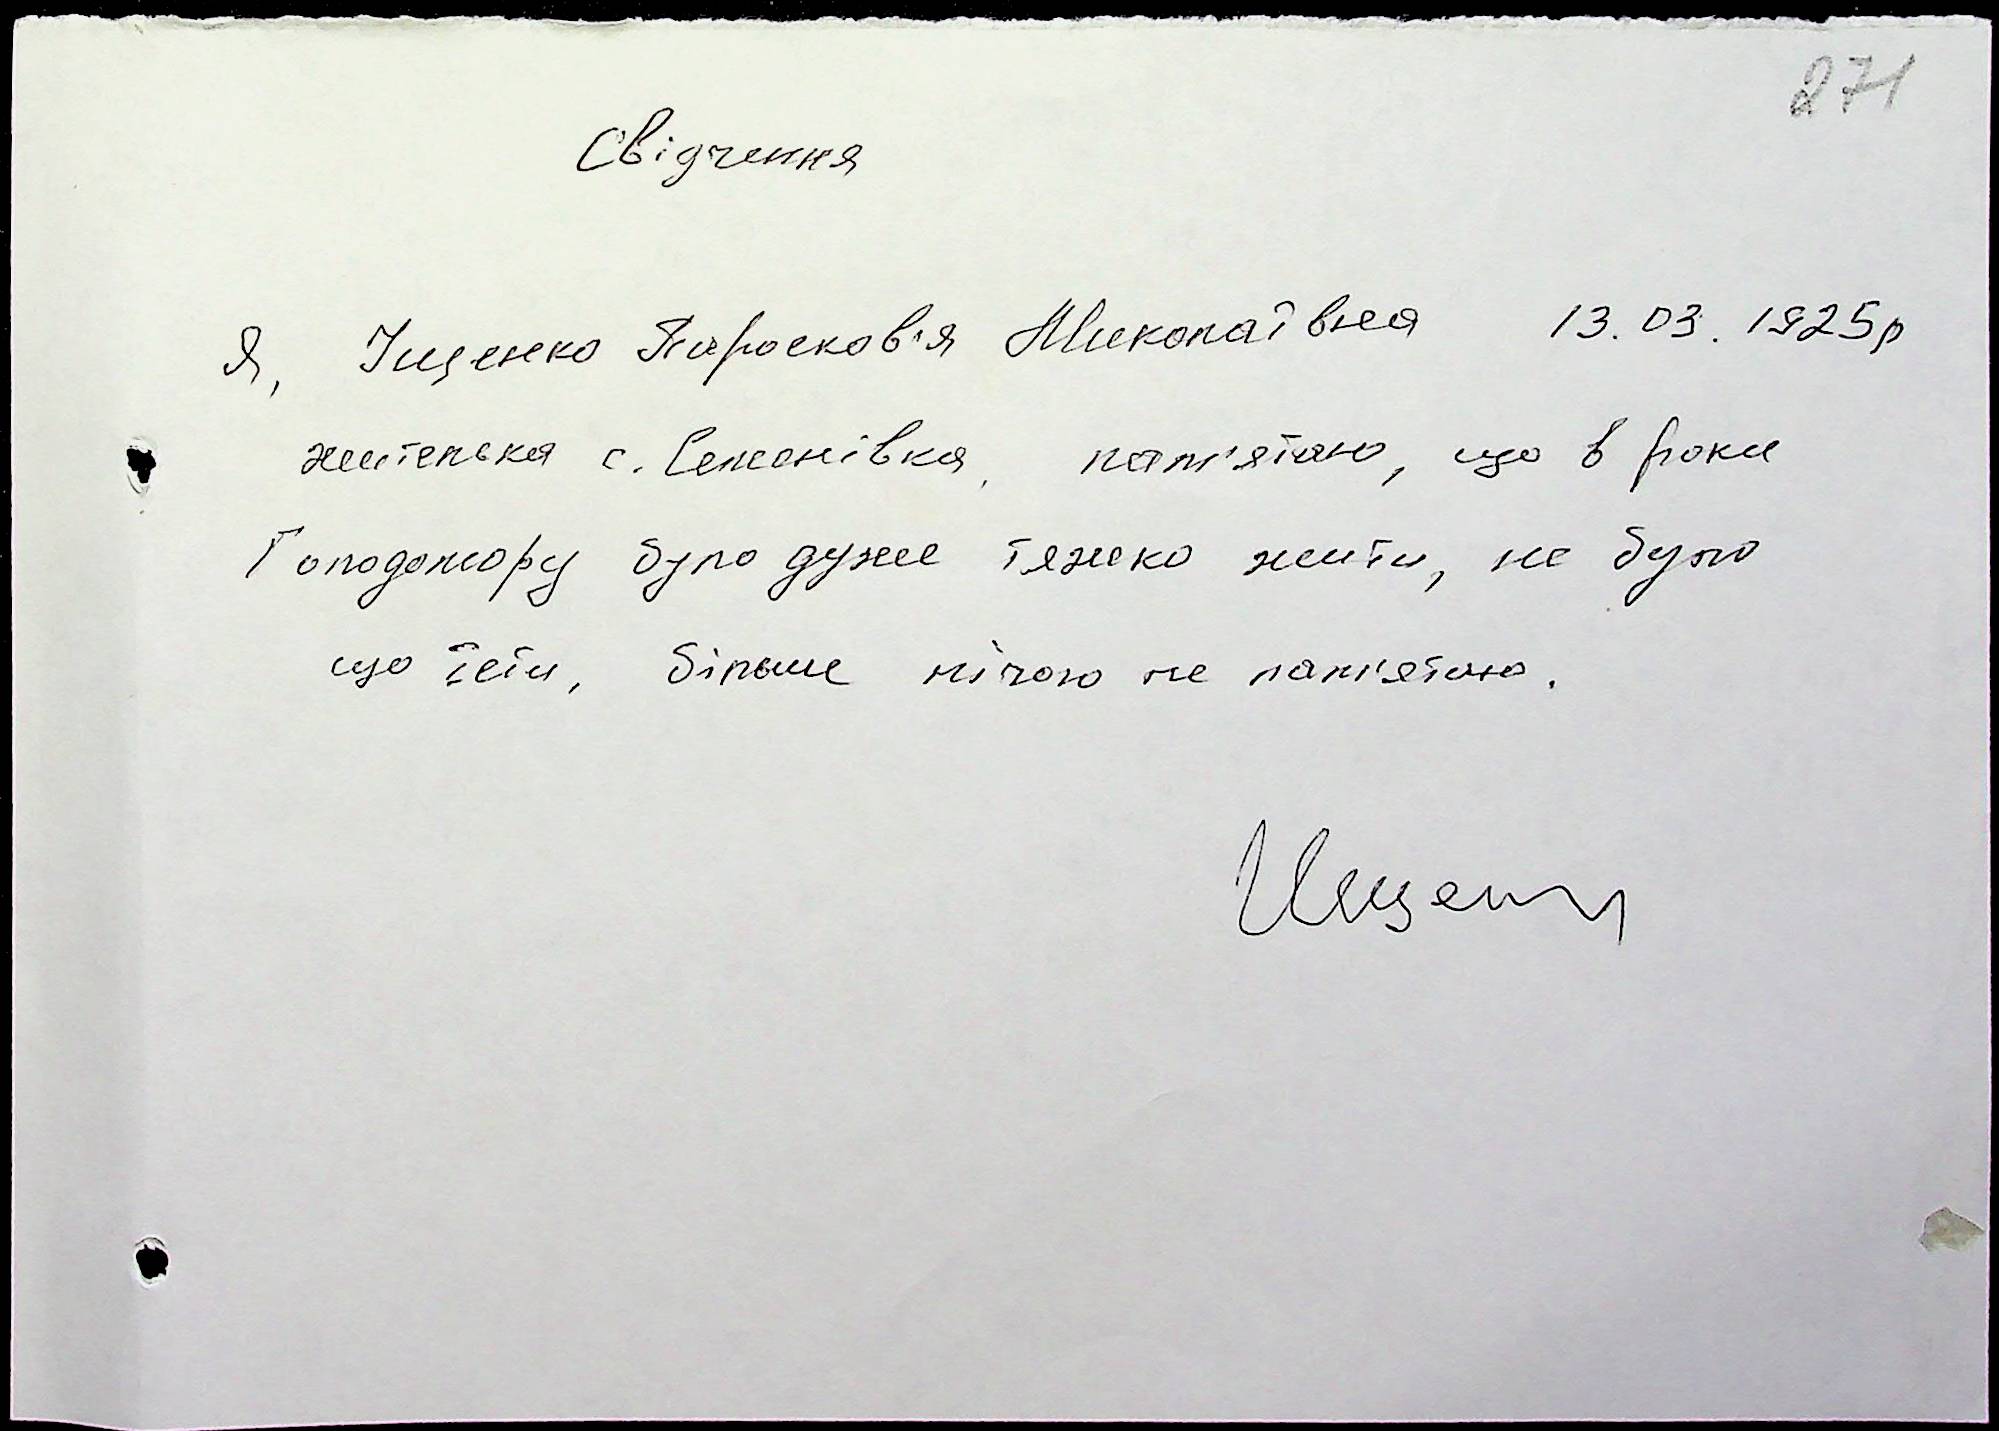 271
Свідчення
Я, Іщенко Парасковія Миколаївна 13.03.1925р
жителька с. Семенівка, пам'ятаю, що в роки
Голодомору було дуже тяжко жити, не було
що їсти, більше нічого не пам'ятаю.
Ищенк